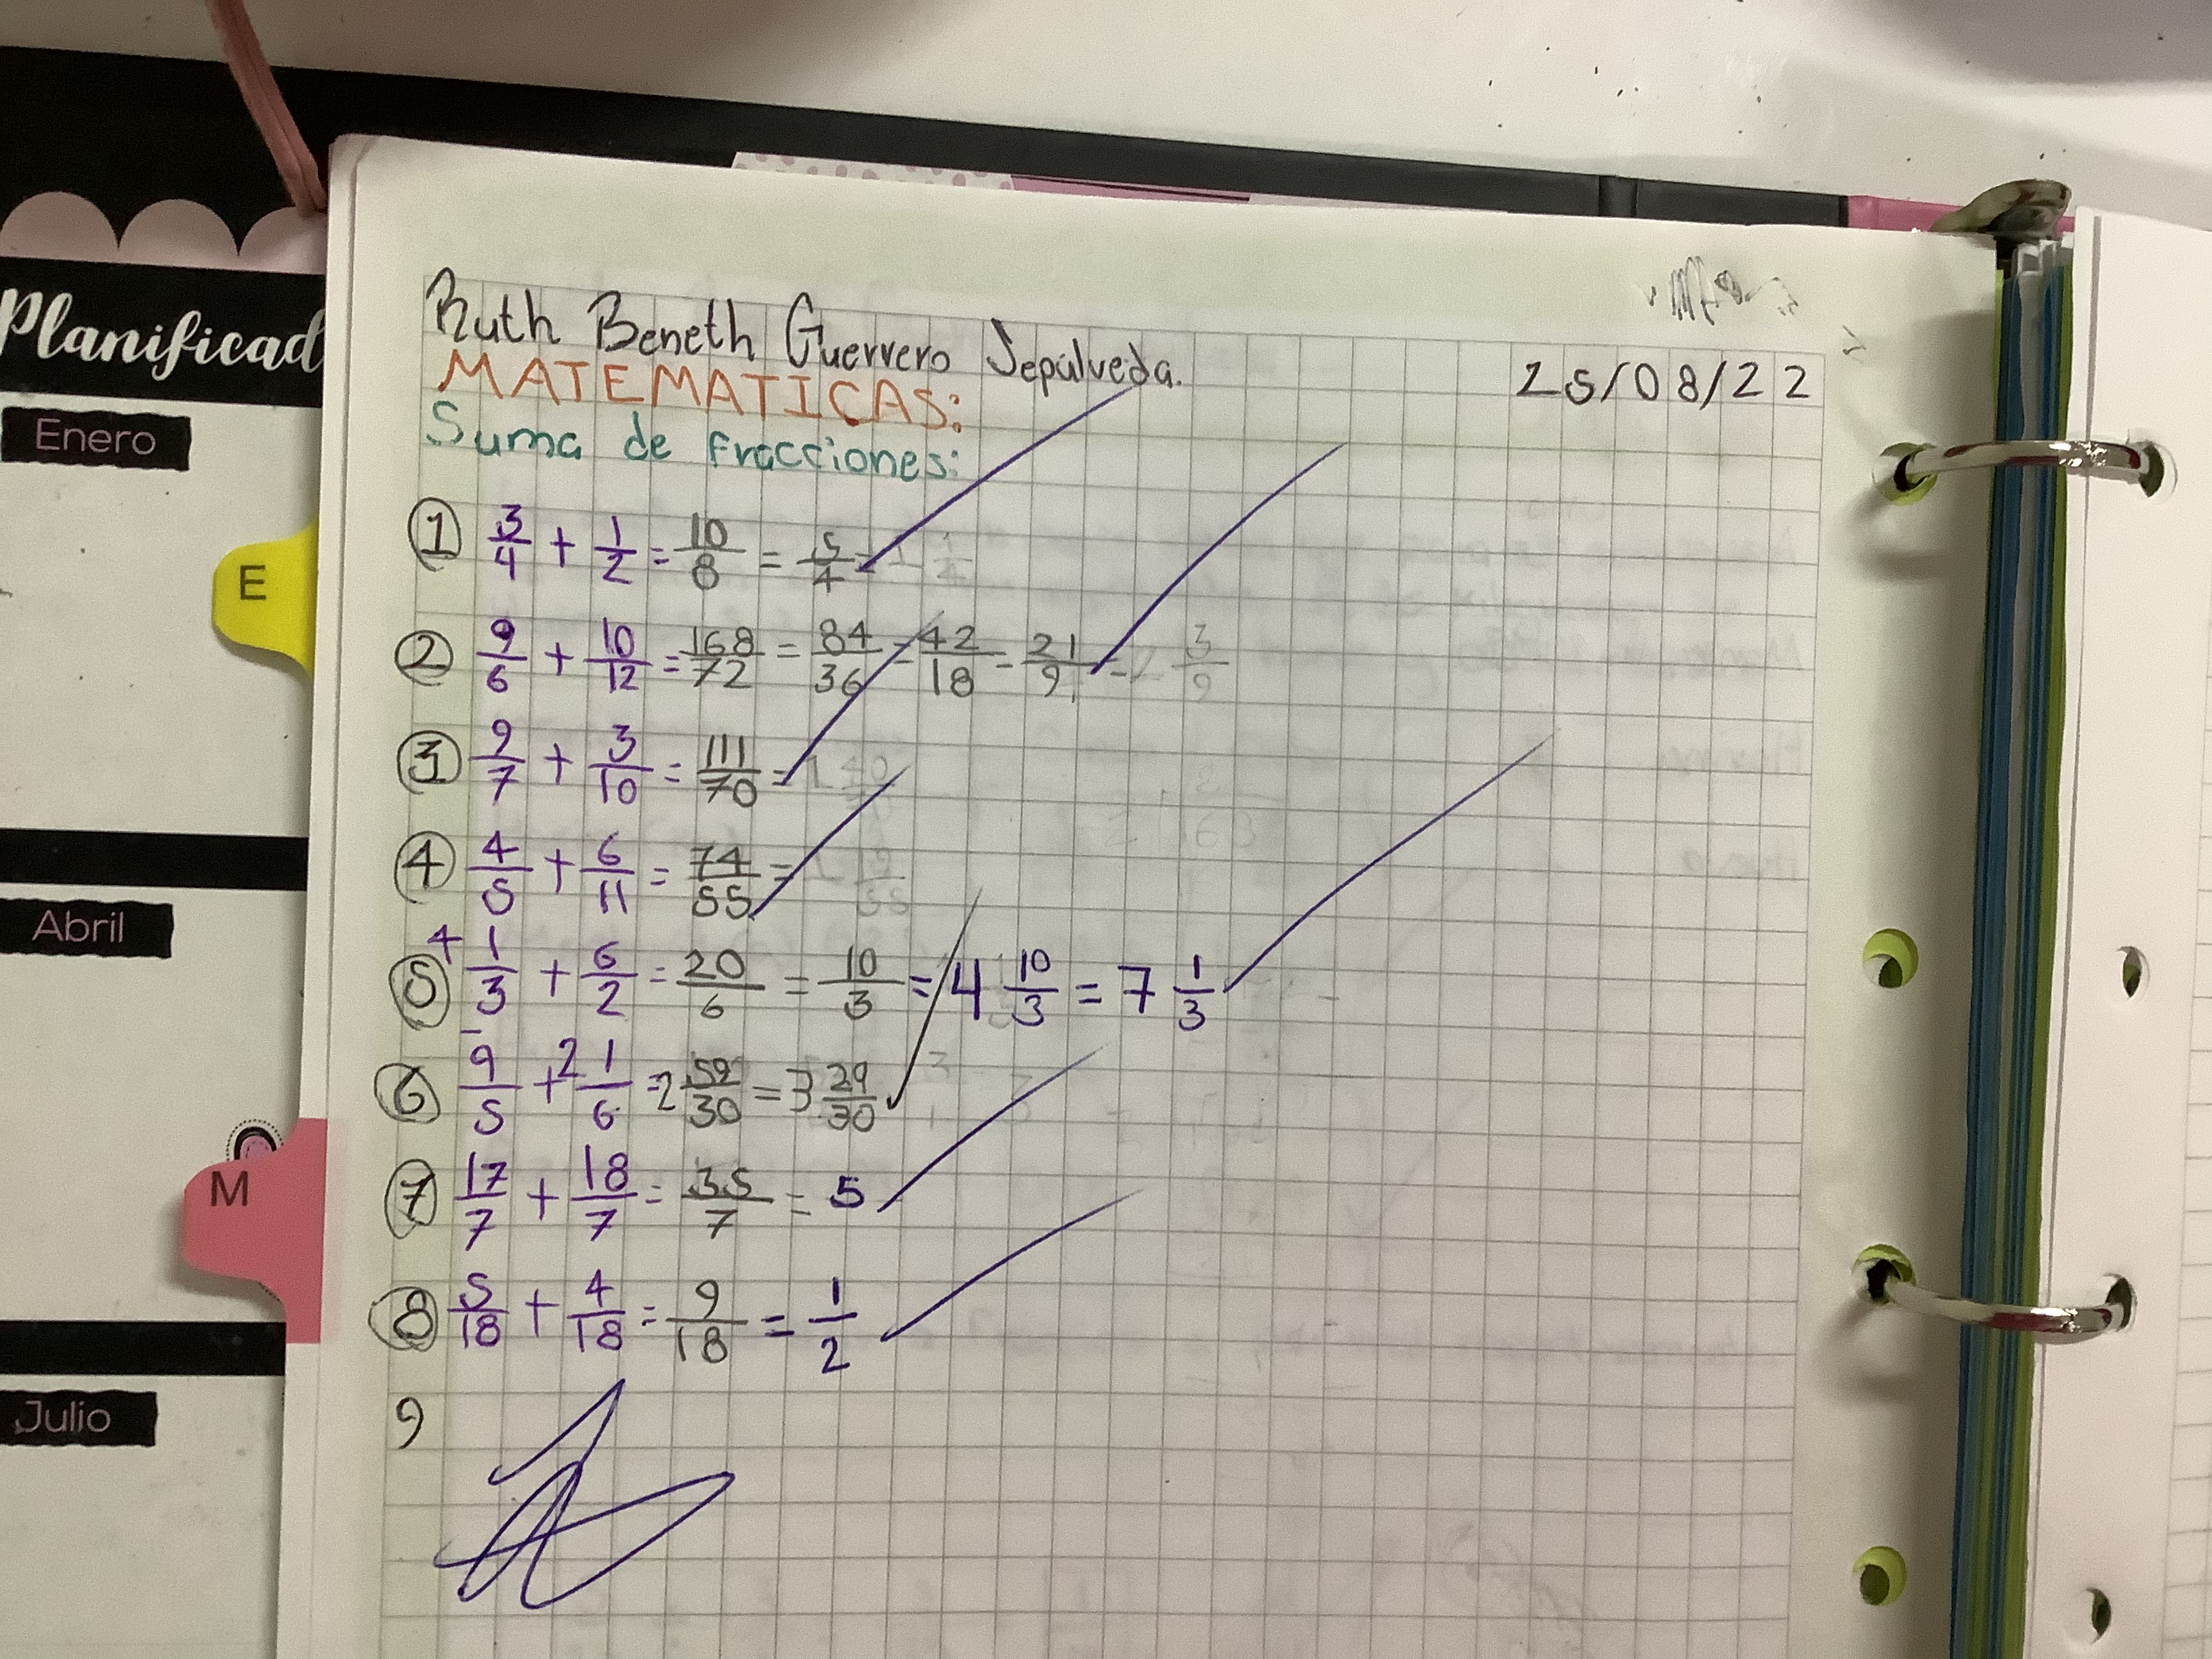 Planificad
Enero
E
Abril
M
Julio
Ruth Beneth Guerrero Sepúlveda.
25/08/22
MATEMATICAS:
Suma de fracciones:
① 3/4 + 1/2 = 10/8 = 5/4
② 9/6 + 10/12 = 168/72 = 84/36 = 42/18 = 21/9 = 3/9
③ 9/7 + 3/10 = 111/70 =
④ 4/5 + 6/11 = 74/55 =
⑤ 4 1/3 + 6/2 = 20/6 = 10/3 = 4 10/3 = 7 1/3
⑥ 9/5 + 2 1/6 = 2 59/30 = 3 29/30
⑦ 17/7 + 18/7 = 35/7 = 5
⑧ 5/18 + 4/18 = 9/18 = 1/2
9